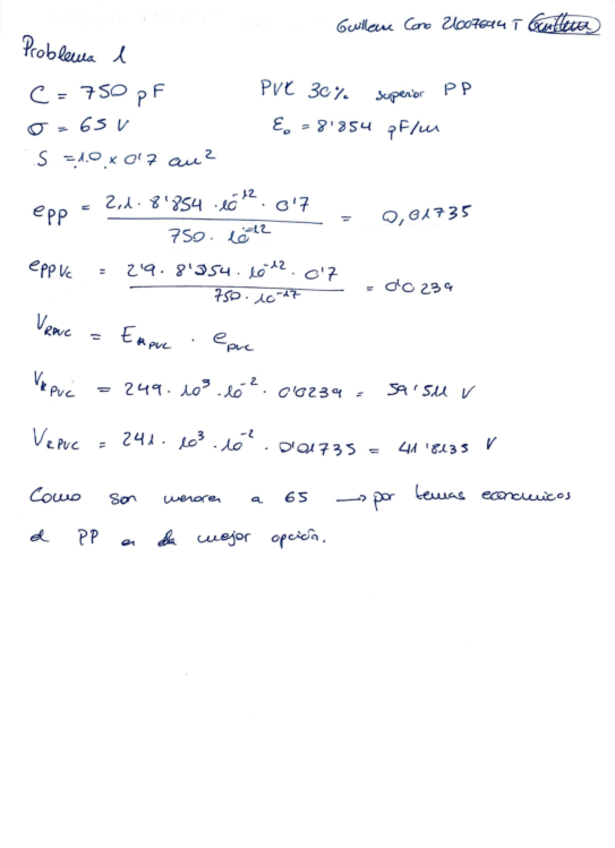 Guillem Cano 21007694 T
Problema 1
C = 750 pF PVC 30% superior PP
σ = 65 V ε₀ = 8'854 pF/m
S = 1.0 x 0'7 cm²
e_PP = 2,1 · 8'854 · 10⁻¹² · 0'7 / 750 · 10⁻¹² = 0,01735
e_PPVC = 2'9 · 8'854 · 10⁻¹² · 0'7 / 750 · 10⁻¹² = 0'0239
V_RPVC = E_RPVC · e_PVC
V_RPVC = 249 · 10³ · 10⁻² · 0'0239 = 59'511 V
V_RPVC = 241 · 10³ · 10⁻² · 0'01735 = 41'8135 V
Como son menores a 65 → por temas económicos
el PP es la mejor opción.